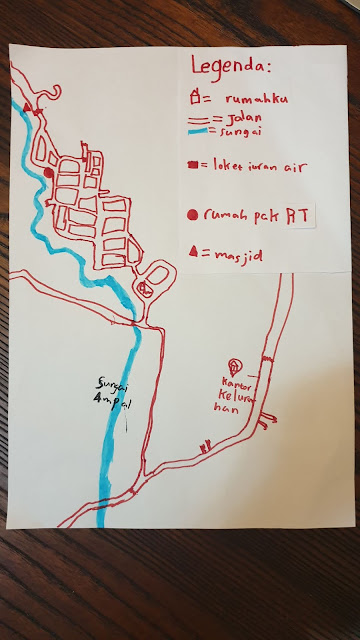 Legenda:
= rumahku
= Jalan
= sungai
= loket iuran air
rumah pak RT
= masjid
Kantor
Kelura
han
Sungai
Ampal